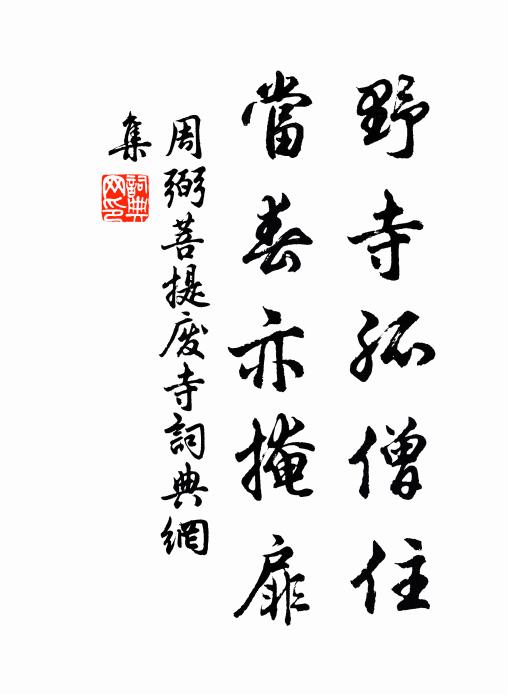 野寺孤僧住
當春亦掩扉
周弼菩提廢寺詞典網
集
詞典
网印